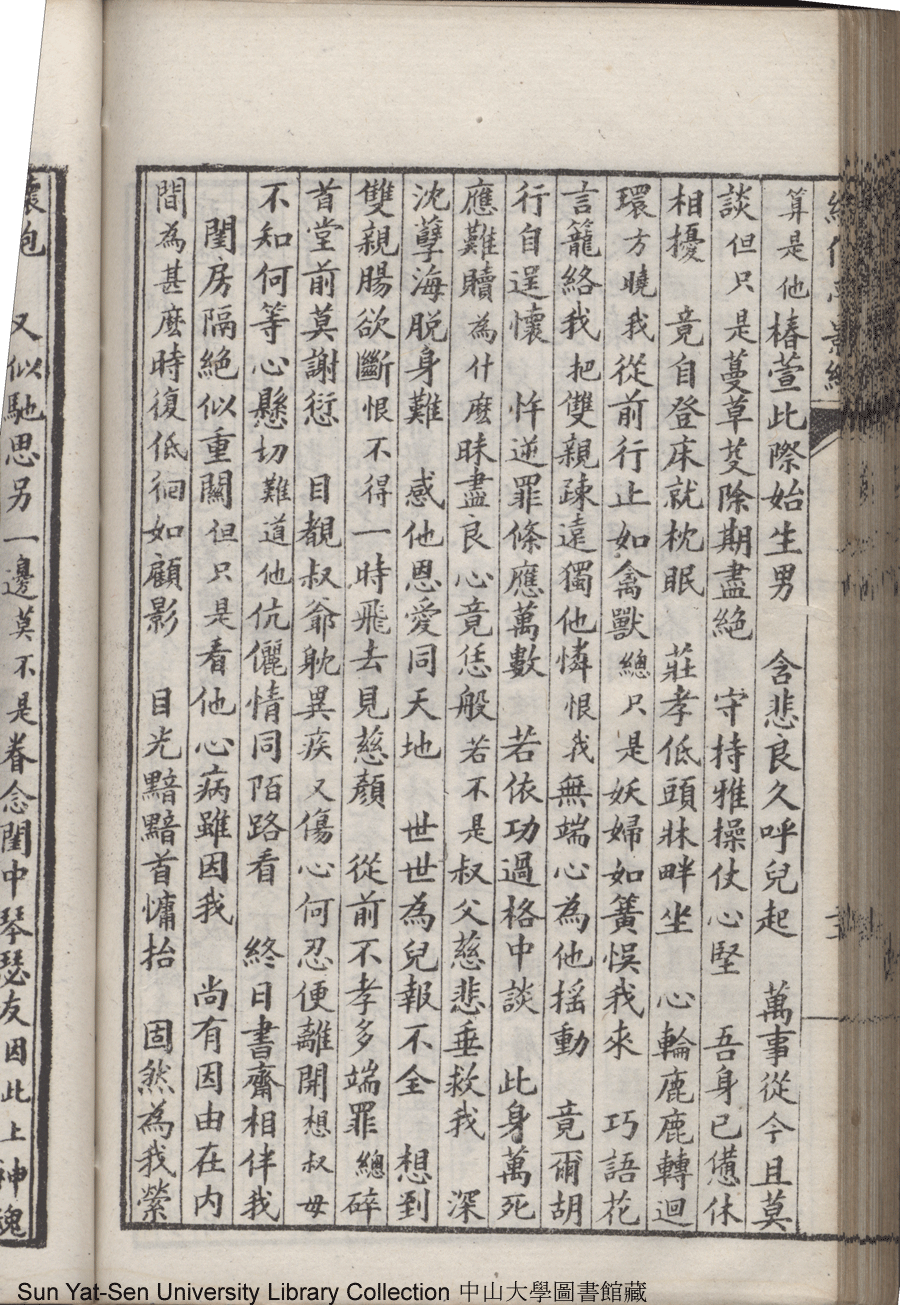 算是他椿萱此際始生男　含悲良久呼兒起　萬事從今且莫
談但只是蔓草芟除期盡絕　守持雅操仗心堅　吾身已憊休
相擾　竟自登床就枕眠　莊孝低頭牀畔坐　心輪鹿鹿轉迴
環方曉我從前行止如禽獸總只是妖婦如簧悞我來　巧語花
言籠絡我把雙親踈遠獨他憐恨我無端心為他揺動　竟爾胡
行自逞懷　忤逆罪條應萬數　若依功過格中談　此身萬死
應難贖為什麽昧盡良心竟恁般若不是叔父慈悲垂救我　深
沈孽海脱身難　感他恩愛同天地　世世為兒報不全　想到
雙親腸欲斷恨不得一時飛去見慈顏　從前不孝多端罪總碎
首堂前莫謝愆　目覩叔爺躭異疾又傷心何忍便離開想叔母
不知何等心懸切難道他伉儷情同陌路看　終日書齋相伴我
閨房隔絕似重關但只是看他心病雖因我　尚有因由在内
間為甚麽時復低徊如顧影　目光黯黯首慵抬　固然為我縈
懷抱　又似馳思另一邊莫不是眷念閨中琴瑟友因此上神魂
Sun Yat-Sen University Library Collection 中山大學圖書館藏